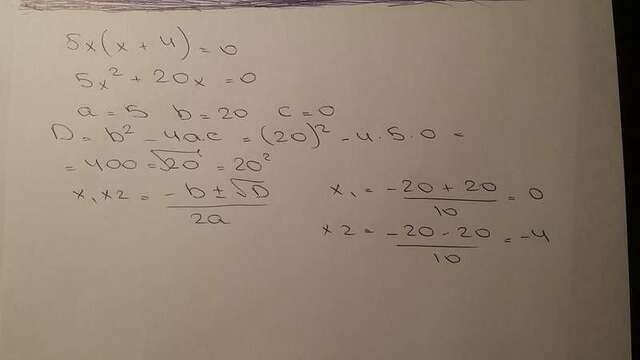 5x(x + 4) = 0
5x² + 20x = 0
a = 5 b = 20 c = 0
D = b² - 4ac = (20)² - 4·5·0 =
= 400 = √20 = 20²
x, x2 = -b ± √D / 2a
x₁ = -20 + 20 / 10 = 0
x2 = -20 - 20 / 10 = -4